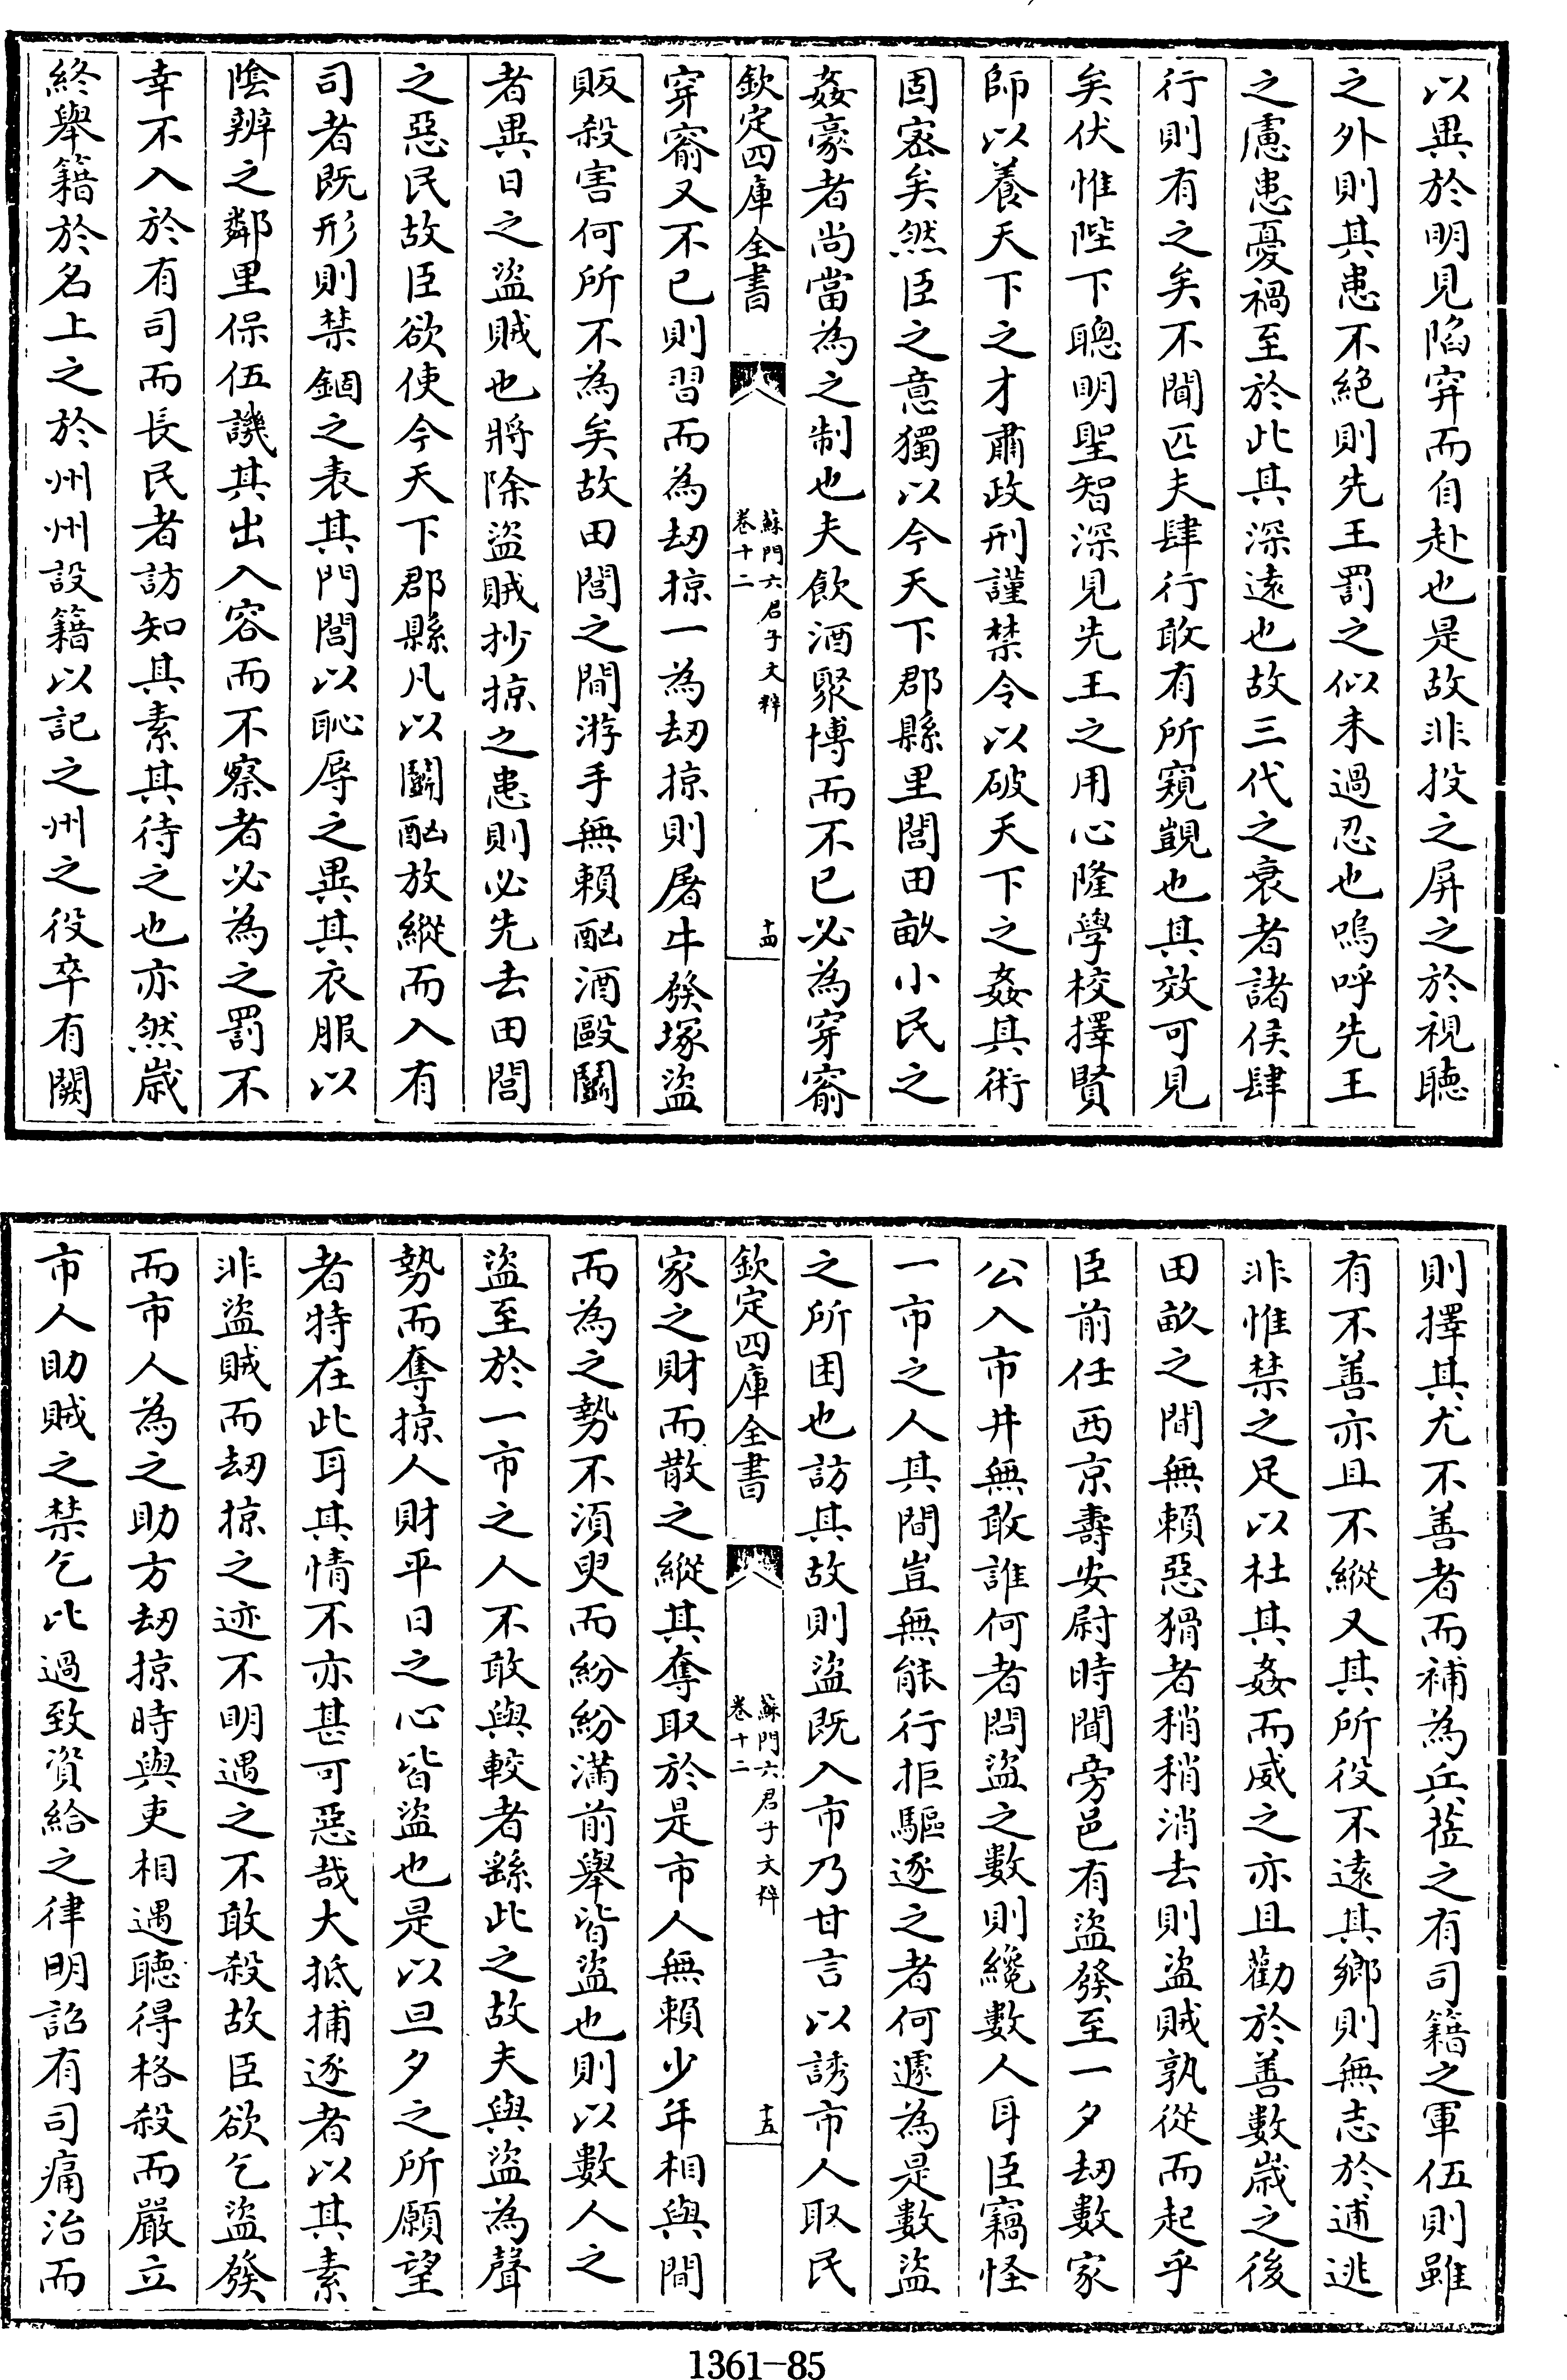 以異於明見陷穽而自赴也是故非投之屏之於視聽
之外則其患不絕則先王罰之似未過忍也嗚呼先王
之慮患憂禍至於此其深遠也故三代之衰者諸侯肆
行則有之矣不聞匹夫肆行敢有所窺覬也其效可見
矣伏惟陛下聰明聖智深見先王之用心隆學校擇賢
師以養天下之才肅政刑謹禁令以破天下之姦其術
固宻矣然臣之意獨以今天下郡縣里閭田畝小民之
姦豪者尚當為之制也夫飲酒聚博而不已必為穿窬
欽定四庫全書
蘇門六君子文粹
卷十二
十四
穿窬又不已則習而為刼掠一為刼掠則屠牛發塚盜
販殺害何所不為矣故田閭之間游手無賴酗酒毆鬬
者異日之盜賊也將除盜賊抄掠之患則必先去田閭
之惡民故臣欲使今天下郡縣凡以鬬酗放縱而入有
司者既形則禁錮之表其門閭以恥辱之異其衣服以
隂辨之鄰里保伍譏其出入容而不察者必為之罰不
幸不入於有司而長民者訪知其素其待之也亦然嵗
終舉籍於名上之於州州設籍以記之州之役卒有闕
則擇其尤不善者而補為兵蒞之有司籍之軍伍則雖
有不善亦且不縱又其所役不遠其鄉則無志於逋逃
非惟禁之足以杜其姦而威之亦且勸於善數嵗之後
田畝之間無賴惡猾者稍稍消去則盜賊孰從而起乎
臣前任西京壽安尉時聞旁邑有盜發至一夕刼數家
公入市井無敢誰何者問盜之數則纔數人耳臣竊怪
一市之人其間豈無能行拒驅逐之者何遽為是數盜
之所困也訪其故則盜既入市乃甘言以誘市人取民
欽定四庫全書
蘇門六君子文粹
卷十二
十五
家之財而散之縱其奪取於是市人無賴少年相與間
而為之勢不須臾而紛紛滿前舉皆盜也則以數人之
盜至於一市之人不敢與較者繇此之故夫與盜為聲
勢而奪掠人財平日之心皆盜也是以旦夕之所願望
者特在此耳其情不亦甚可惡哉大抵捕逐者以其素
非盜賊而刼掠之迹不明遇之不敢殺故臣欲乞盜發
而市人為之助方刼掠時與吏相遇聽得格殺而嚴立
市人助賊之禁乞比過致資給之律明詔有司痛治而
1361-85